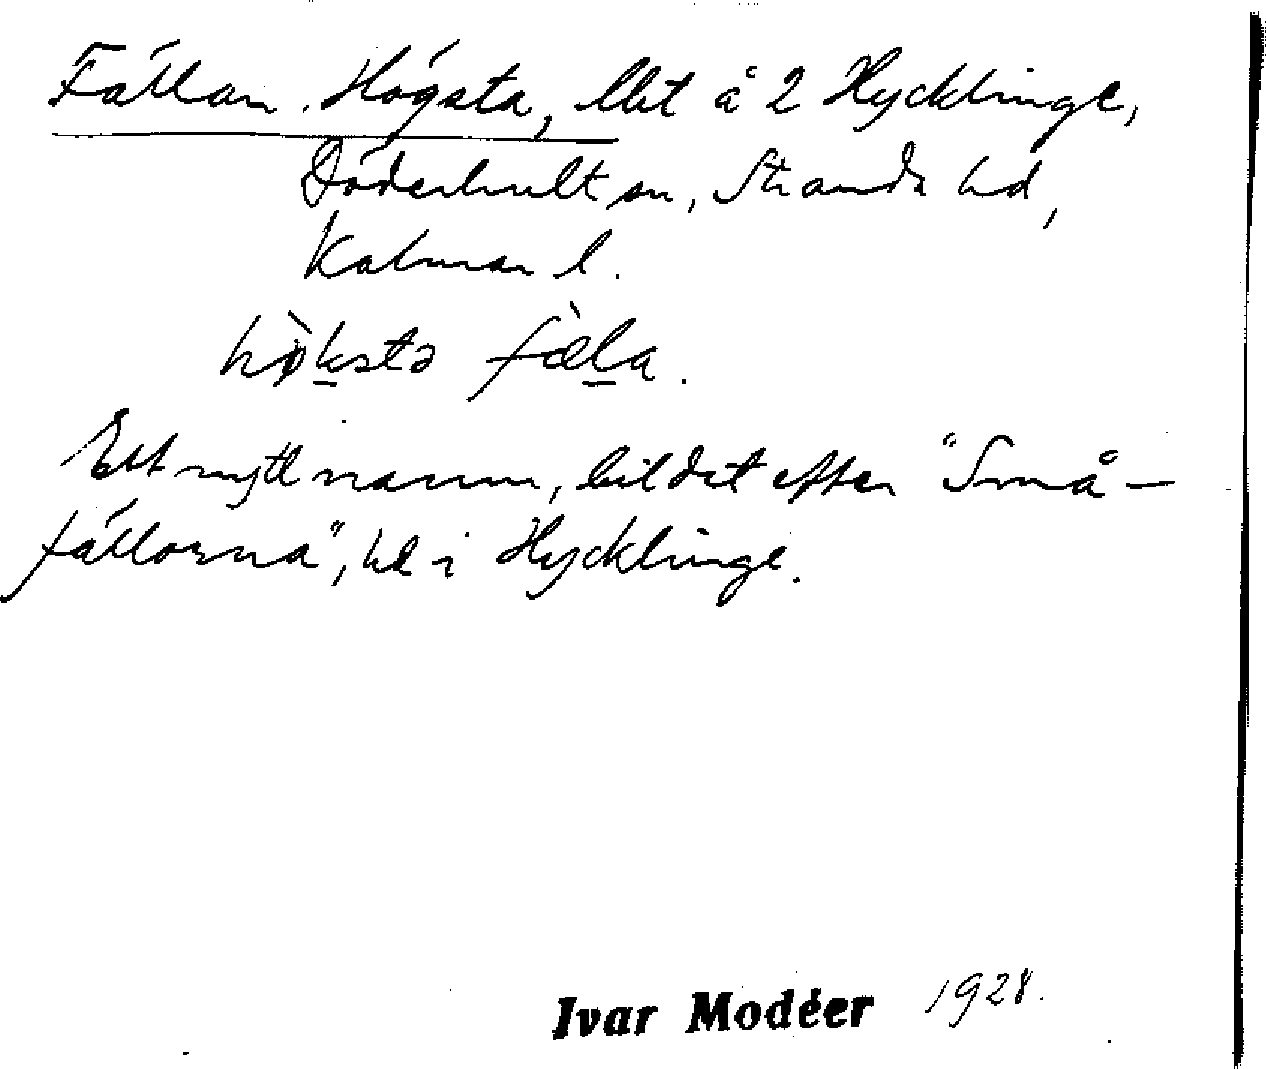 Fällan, Högsta, lht å 2 Hycklinge,
Döderhult sn, Stranda hd,
Kalmar l.
hø̀kstə fæ̀la.
Ett nytt namn, bildat efter "Små-
fällorna", hd i Hycklinge.
Ivar Modéer 1928.